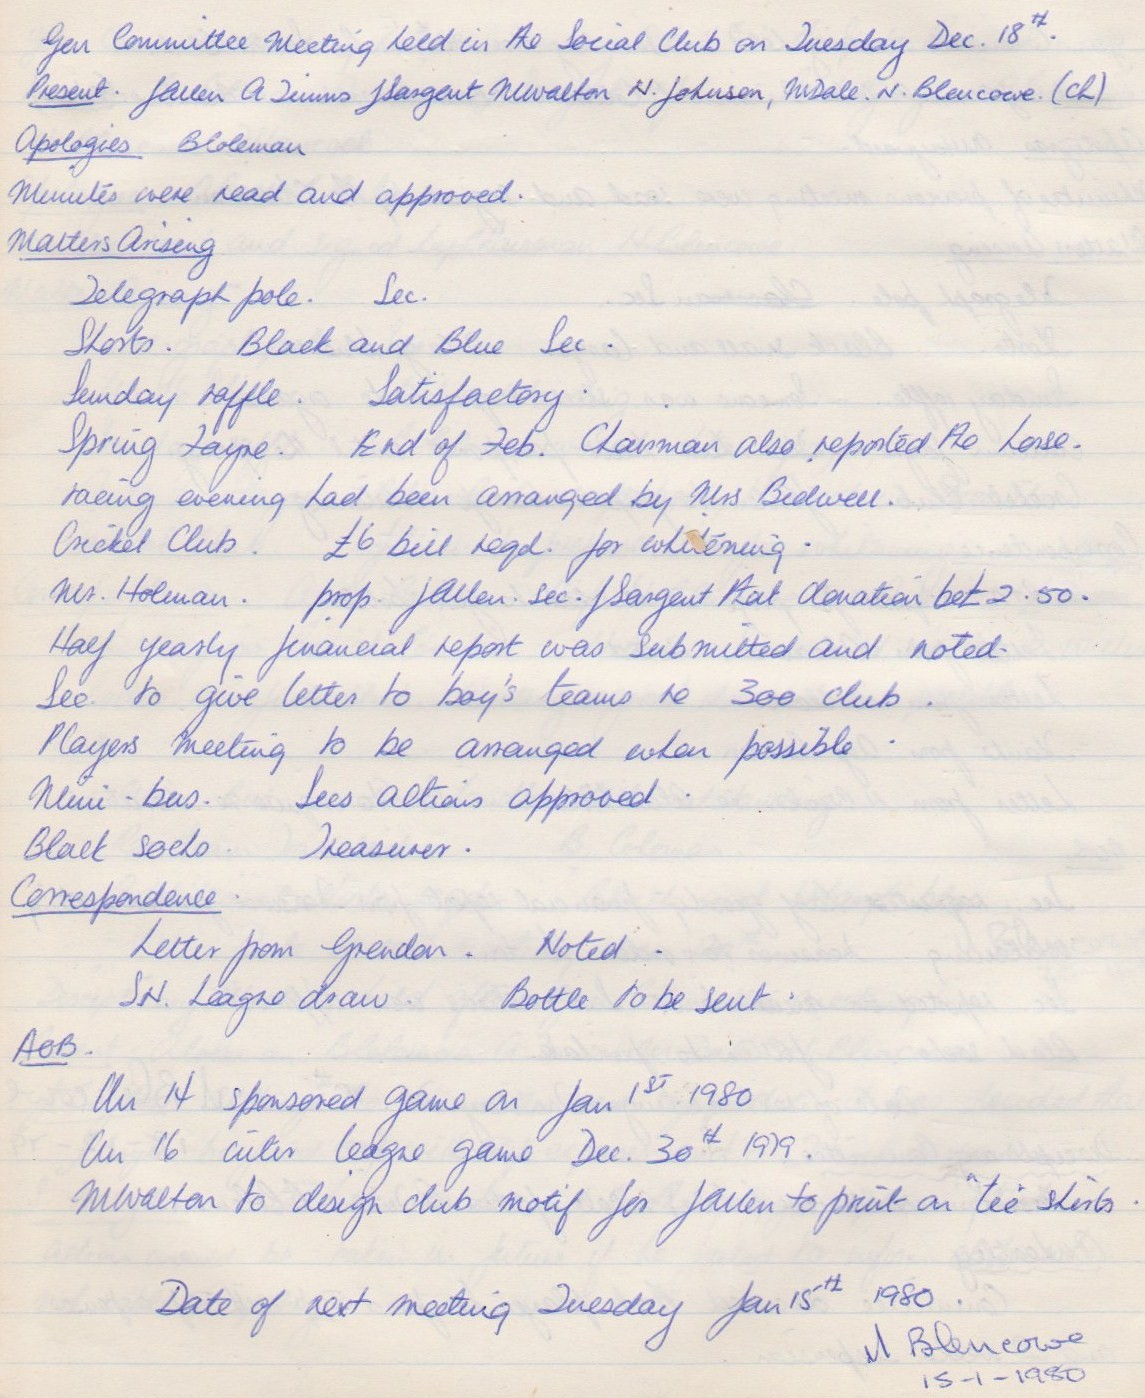 Gen Committee Meeting held in the Social Club on Tuesday Dec. 18th.
Present. J Allen A Timms J Sargent M Walton N. Johnson, M Dale. N. Blencowe. (Ch)
Apologies B Coleman
Minutes were read and approved.
Matters Arising
Telegraph pole. Sec.
Shorts. Black and Blue Sec.
Sunday raffle. Satisfactory.
Spring Fayre. End of Feb. Chairman also reported the horse.
racing evening had been arranged by Mrs Bedwell.
Cricket Club. £6 bill reqd. for whitening.
Mr. Holman. prop. J Allen. sec. J Sargent that donation be £2.50.
Half yearly financial report was submitted and noted.
Sec. to give letter to boy's teams re 300 club.
Players meeting to be arranged when possible.
Mini-bus. Secs actions approved.
Black socks. Treasurer.
Correspondence.
Letter from Grendon. Noted.
S.N. League draw. Bottle to be sent.
AOB.
Un 14 sponsored game on Jan 1st 1980
Un 16 inter league game Dec. 30th 1979.
M Walton to design club motif for J Allen to print on "tee" shirts.
Date of next meeting Tuesday Jan 15th 1980.
N Blencowe
15-1-1980